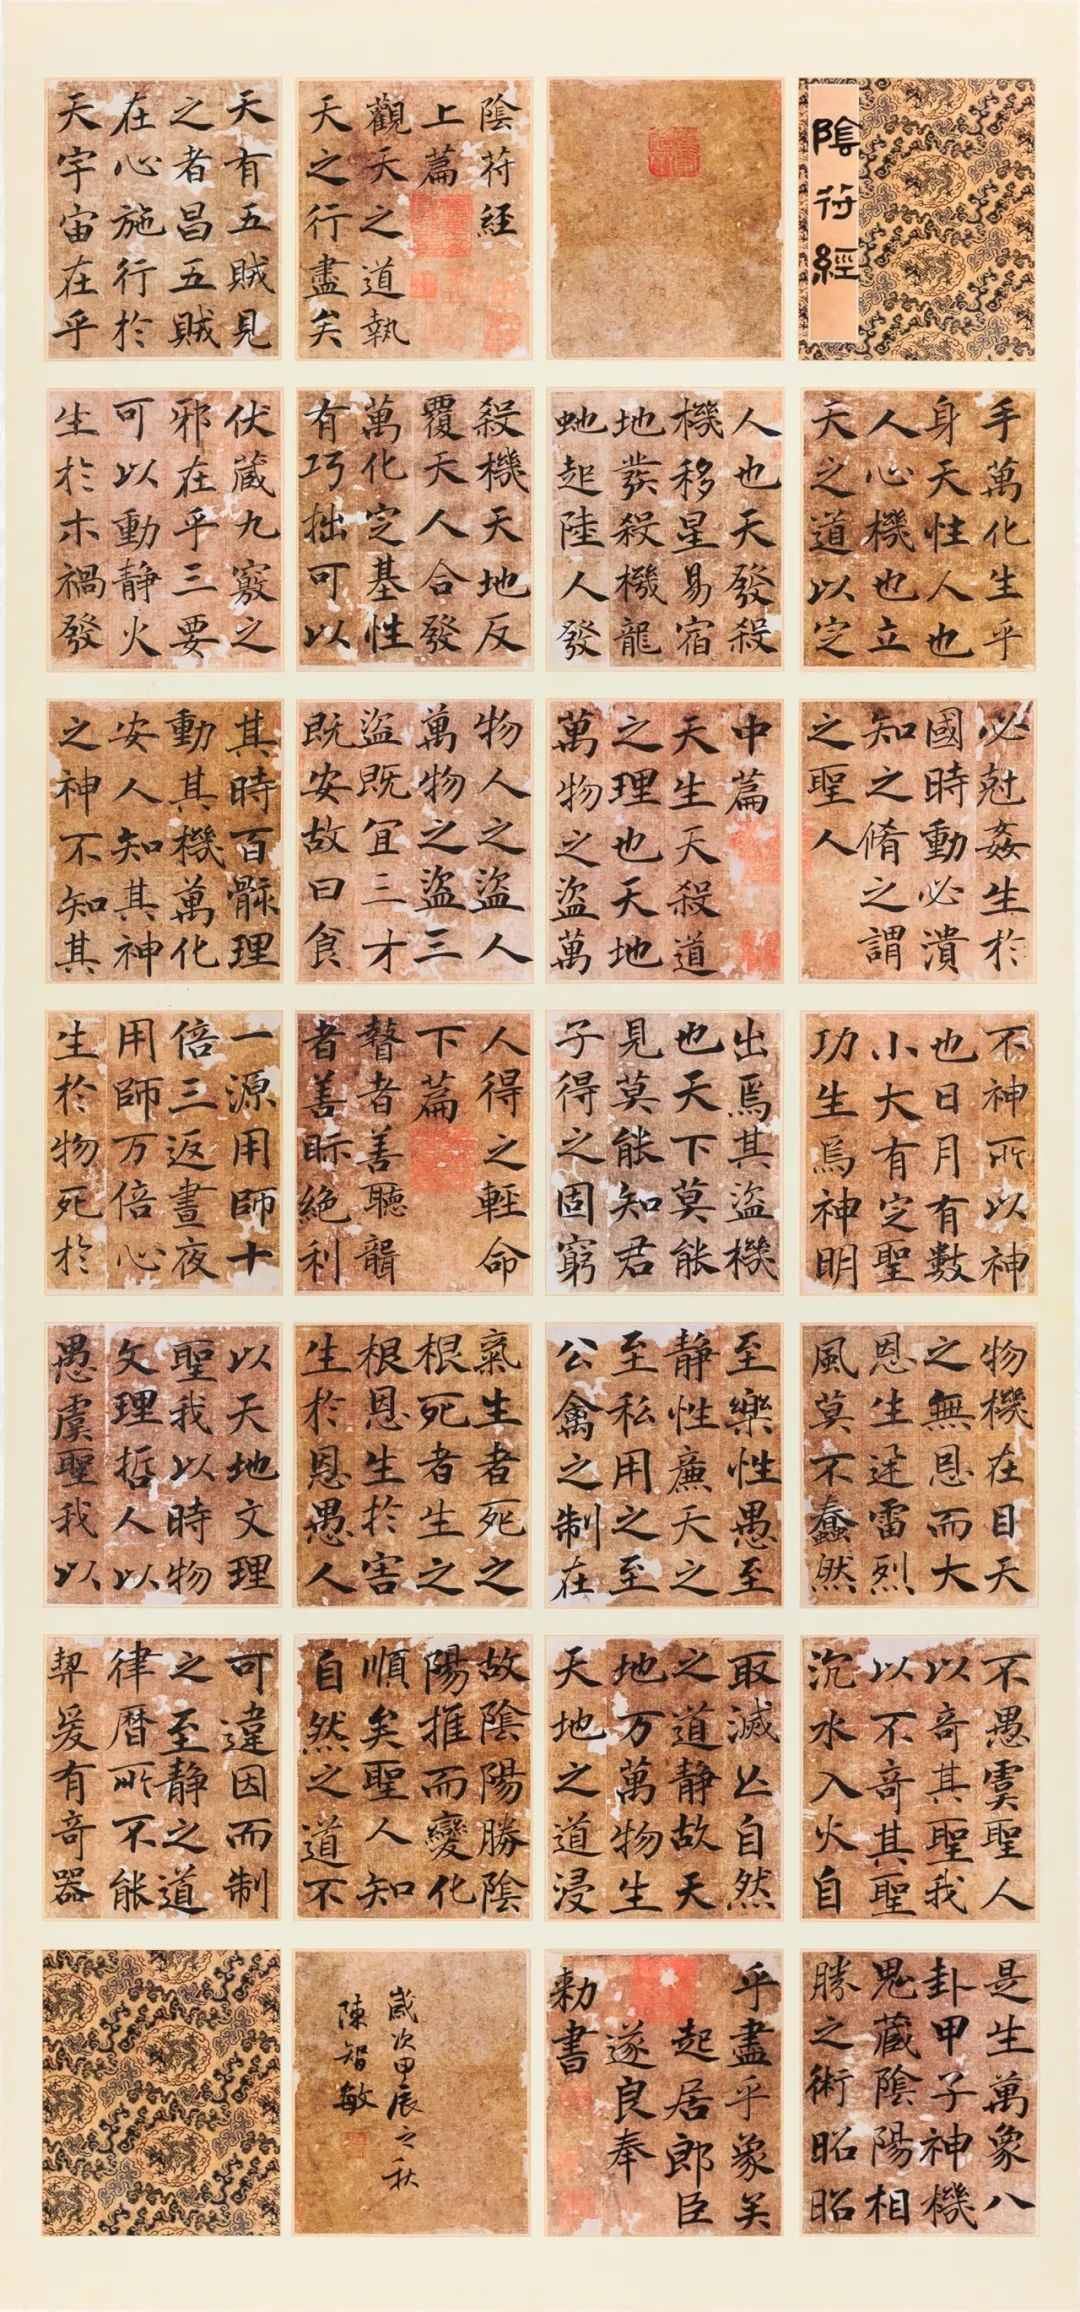 陰符經
陰符經
上篇
觀天之道執
天之行盡矣
天有五賊見
之者昌五賊
在心施行於
天宇宙在乎
手萬化生乎
身天性人也
人心機也立
天之道以定
人也天發殺
機移星易宿
地發殺機龍
虵起陸人發
殺機天地反
覆天人合發
萬化定基性
有巧拙可以
伏藏九竅之
邪在乎三要
可以動靜火
生於木禍發
必尅姦生於
國時動必潰
知之脩之謂
之聖人
中篇
天生天殺道
之理也天地
萬物之盜萬
物人之盜人
萬物之盜三
盜既宜三才
既安故曰食
其時百骸理
動其機萬化
安人知其神
之神不知其
不神所以神
也日月有數
小大有定聖
功生焉神明
出焉其盜機
也天下莫能
見莫能知君
子得之固窮
人得之輕命
下篇
瞽者善聽聾
者善眎絕利
一源用師十
倍三返晝夜
用師万倍心
生於物死於
物機在目天
之無恩而大
恩生迅雷烈
風莫不蠢然
至樂性愚至
靜性廉天之
至私用之至
公禽之制在
氣生者死之
根死者生之
根恩生於害
生於恩愚人
以天地文理
聖我以時物
文理哲人以
愚虞聖我以
不愚虞聖人
以奇其聖我
以不奇其聖
沉水入火自
取滅亡自然
之道靜故天
地万萬物生
天地之道浸
故陰陽勝陰
陽推而變化
順矣聖人知
自然之道不
可違因而制
之至靜之道
律曆所不能
契爰有奇器
是生萬象八
卦甲子神機
鬼藏陰陽相
勝之術昭昭
乎盡乎象矣
起居郎臣
遂良奉
勅書
歲次甲辰之秋
陳智敏